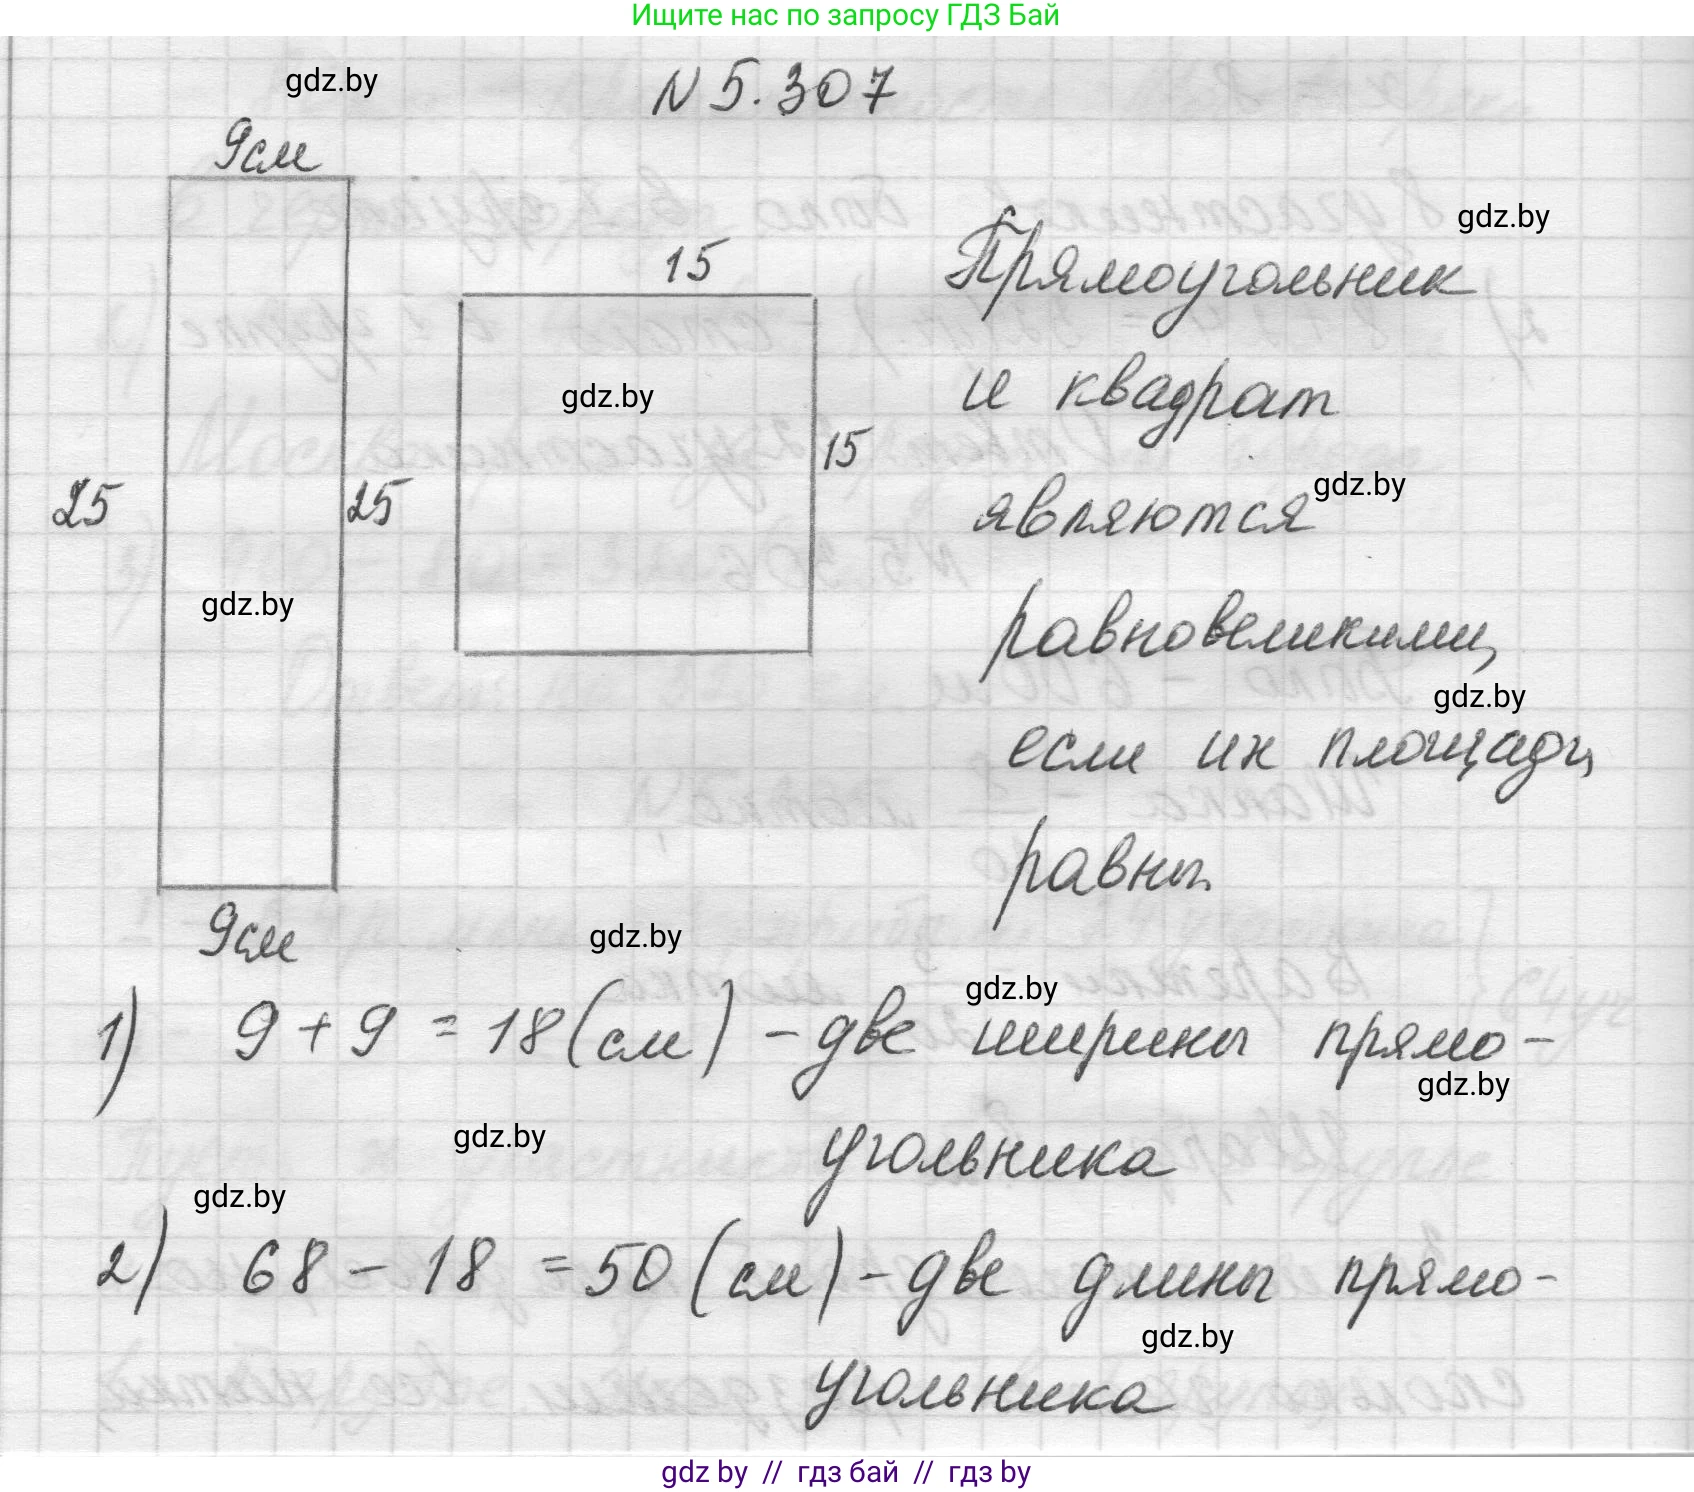 Ищите нас по запросу ГДЗ Бай
gdz.by
N 5.307
9см
gdz.by
15
Прямоугольник
gdz.by
и квадрат
15
25
25
gdz.by
являются
gdz.by
равновеликими,
gdz.by
если их площади
равны.
9см
gdz.by
gdz.by
1) 9 + 9 = 18 (см) - две ширины прямо-
gdz.by
gdz.by
угольника
gdz.by
2) 68 - 18 = 50 (см) - две длины прямо-
gdz.by
угольника
gdz by // гдз бай // гдз by